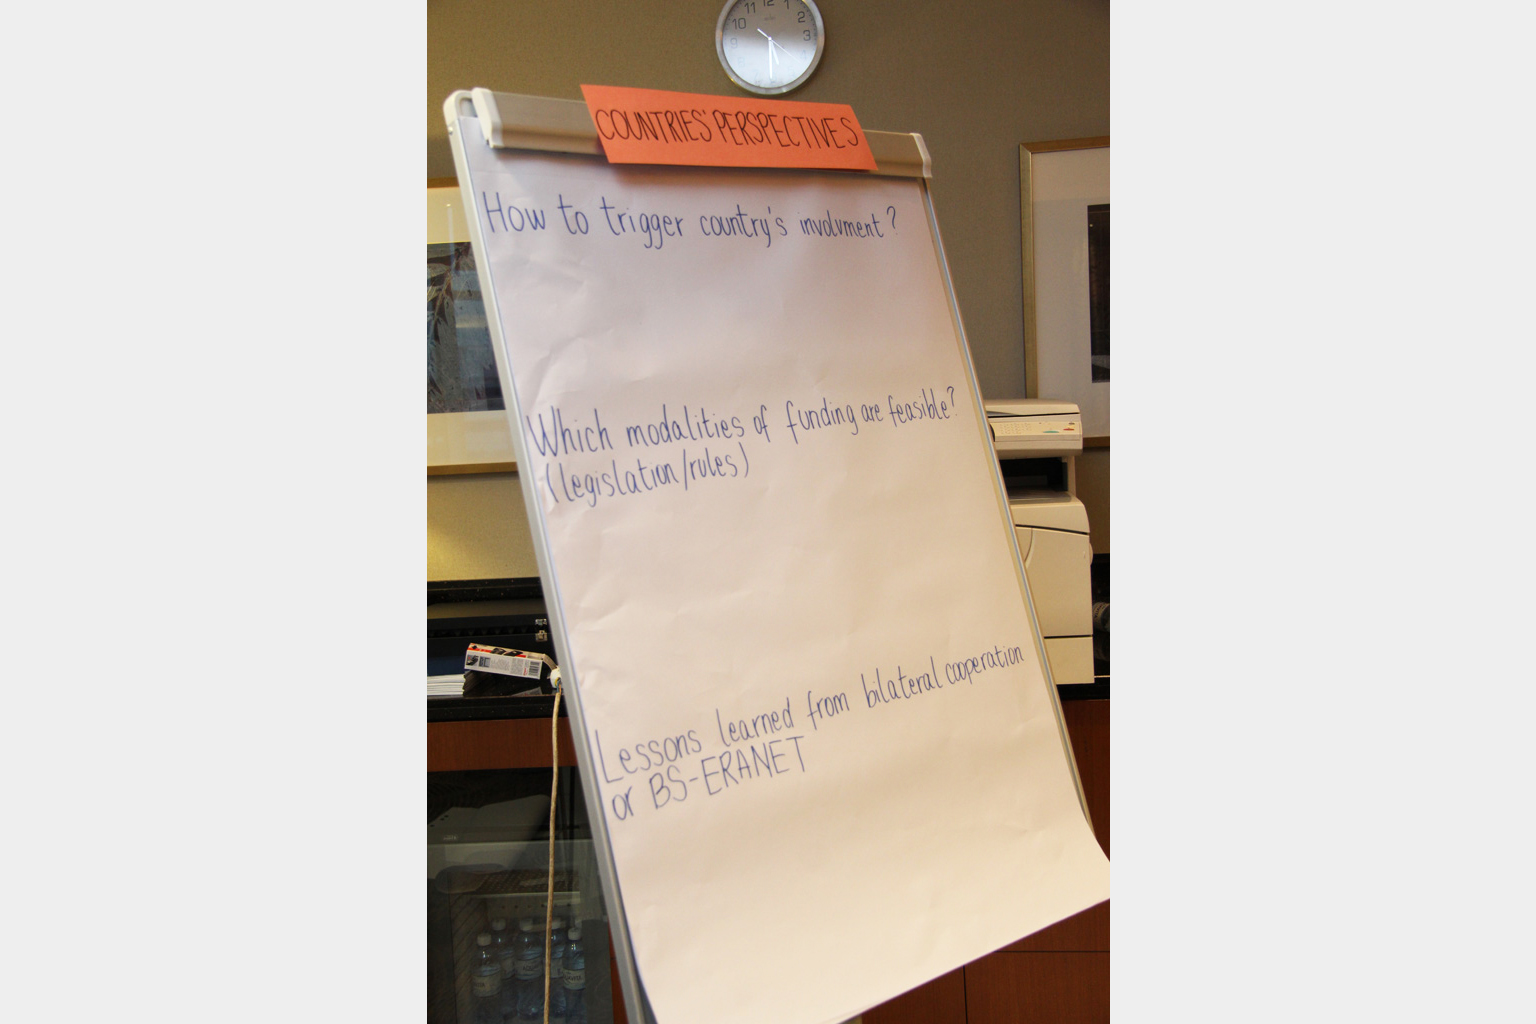 11 12 1
10 2
9 3
COUNTRIES' PERSPECTIVES
How to trigger country's involvment?
Which modalities of funding are feasible?
(legislation/rules)
Lessons learned from bilateral cooperation
or BS-ERANET